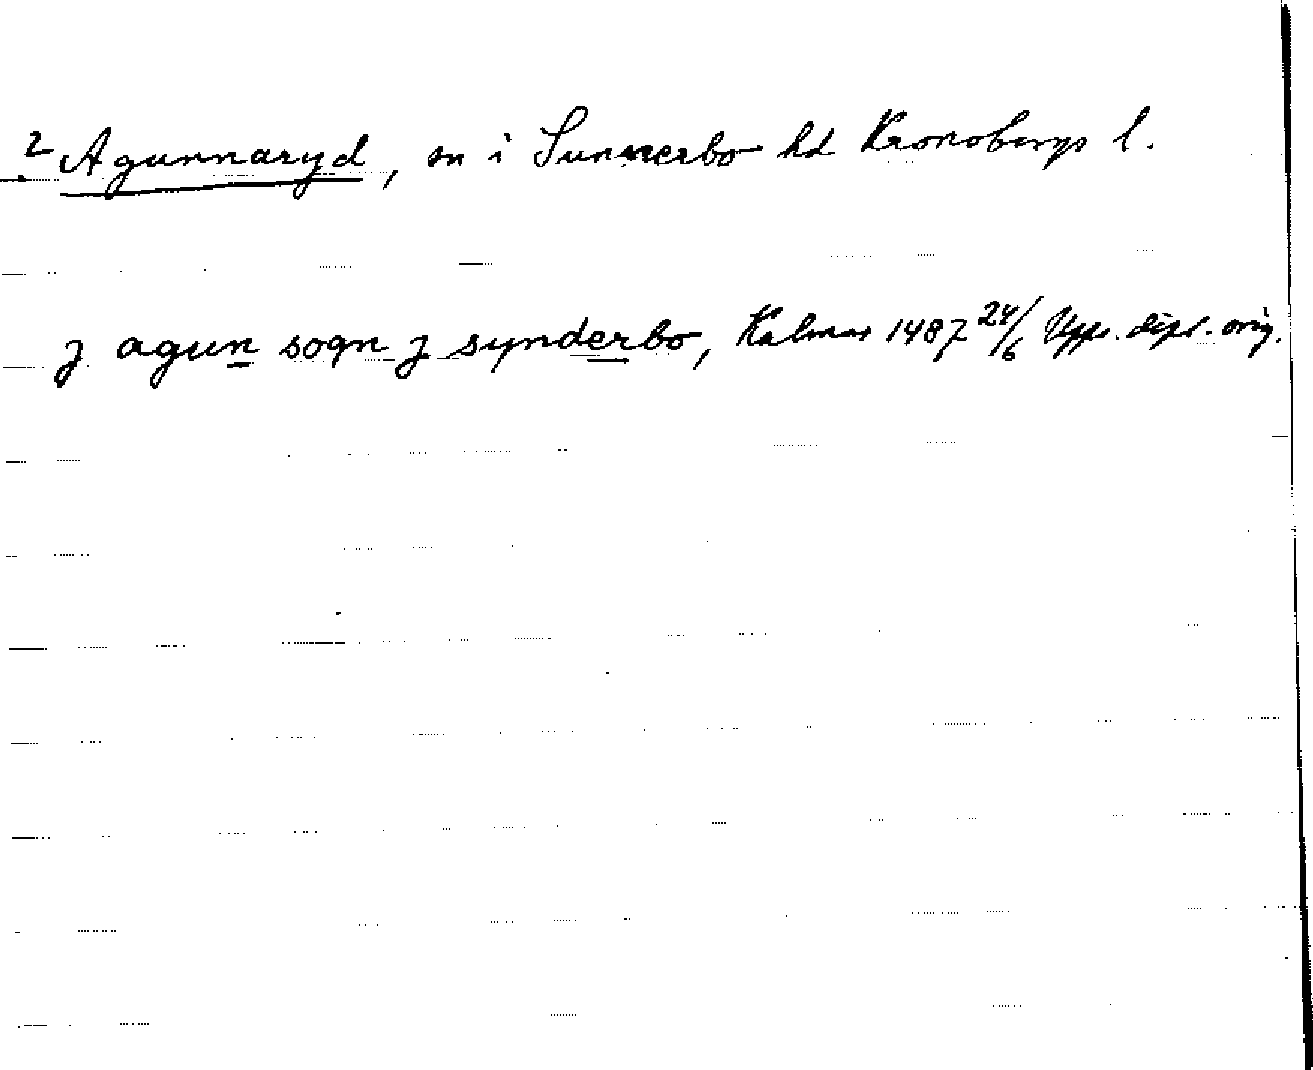 2 Agunnaryd, sn i Sunnerbo hd Kronobergs l.
j agun sogn j synderbo, Kalmar 1487 24/6 Upps. dipl. orig.